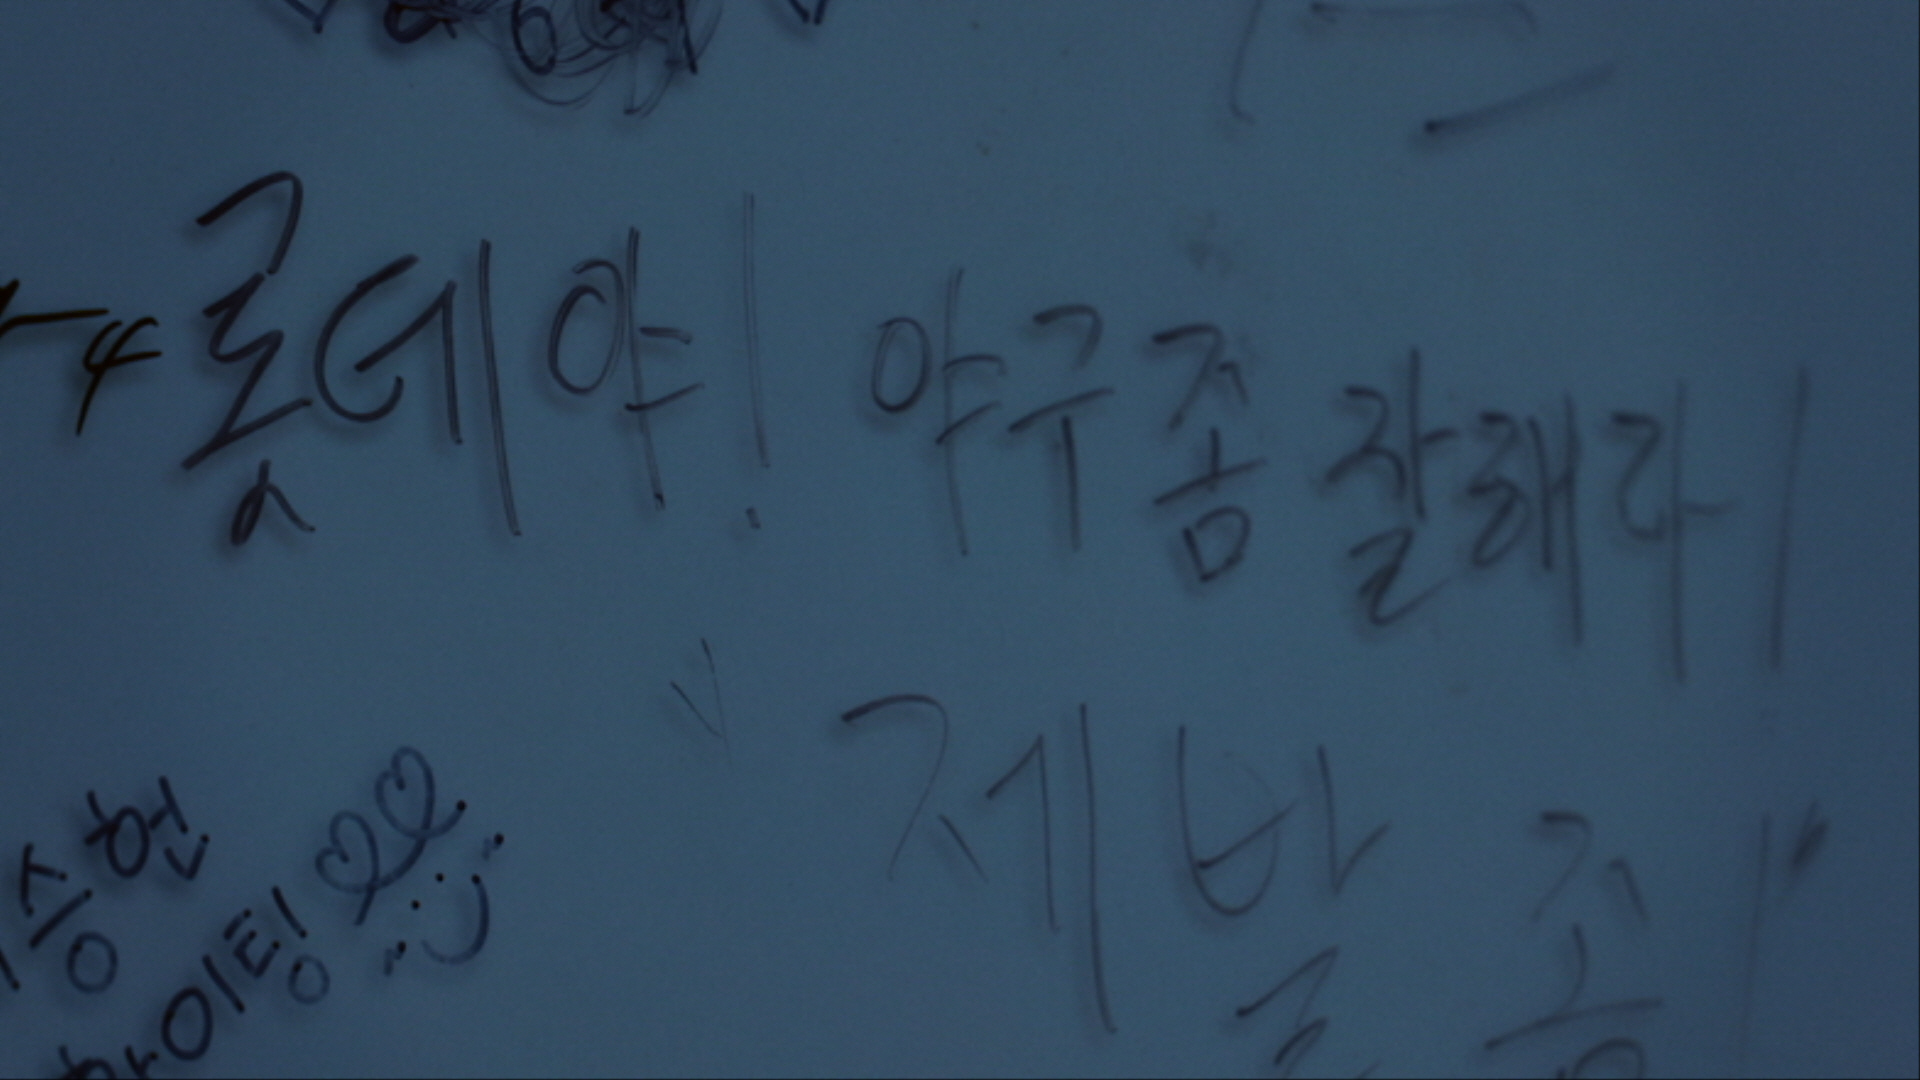 롯데야! 야구좀 잘해라!
"제발 좀!"
승현
화이팅